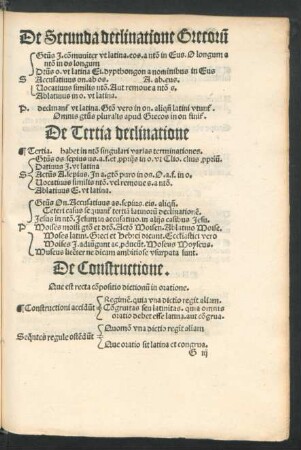 De Secunda declinatione Grecorū
Gtūs I. cōmuniter vt latina. eos. a ntō in Eus. O longum a
ntō in os longum
Dtūs o. vt latina Ei. dypthongon a nominibus in Eus
S Accusatiuus on. ab os. A. ab. eus.
Vocatiuus similis ntō. Aut remoue a ntō s.
Ablatiuus in o. vt latina.
P. declinant̄ vt latina. Gtō vero in on. aliqn̄ latini vtunt̄.
Omnis gtūs pluralis apud Grecos in on finit̄.
De Tertia declinatione
¶ Tertia. habet in ntō singulari varias terminationes.
Gtūs os sepius us. a f. et pprijs in o. vt Clio. clius ppriū.
Datiuus I. vt latina
S Actūs A. sepius. In a. gtō puro in on. O. a f. in o.
Vocatiuus similis ntō. vel remoue s. a ntō.
Ablatiuus E. vt latina.
Gtūs On. Accusatiuus as. sepius. eis. aliqn̄.
Ceteri casus sequunt̄ tertiā latinorū declinationē.
Iesus in ntō. Iesum in accusatiuo. in alijs casibus Iesu.
P Moises mosi gtō et dtō. Actō Moisen. Ablatiuo Moise.
Moses latini. Greci et Hebrei dicunt. Ecclesiastici vero
Moises I. adiūgunt ac pōūcūt. Moseus Moyseus.
Museus licēter ne dicam ambitiose vsurpata sunt.
De Constructione.
Que est recta cōpositio dictionū in oratione.
Regimē. quia vna dictio regit aliam.
¶ Constructioni accidūt Cōgruitas seu latinitas. quia omnis
oratio debet esse latina. aut cōgrua.
Quomō vna dictio regit aliam
Seqn̄tes regule ostēdūt
Que oratio sit latina et congrua.
G iij